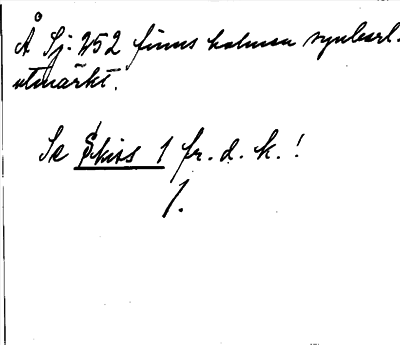 Å Sj: 252 finns holmen synnerl.
utmärkt.
Se Skiss 1 fr. d. k.!
1.